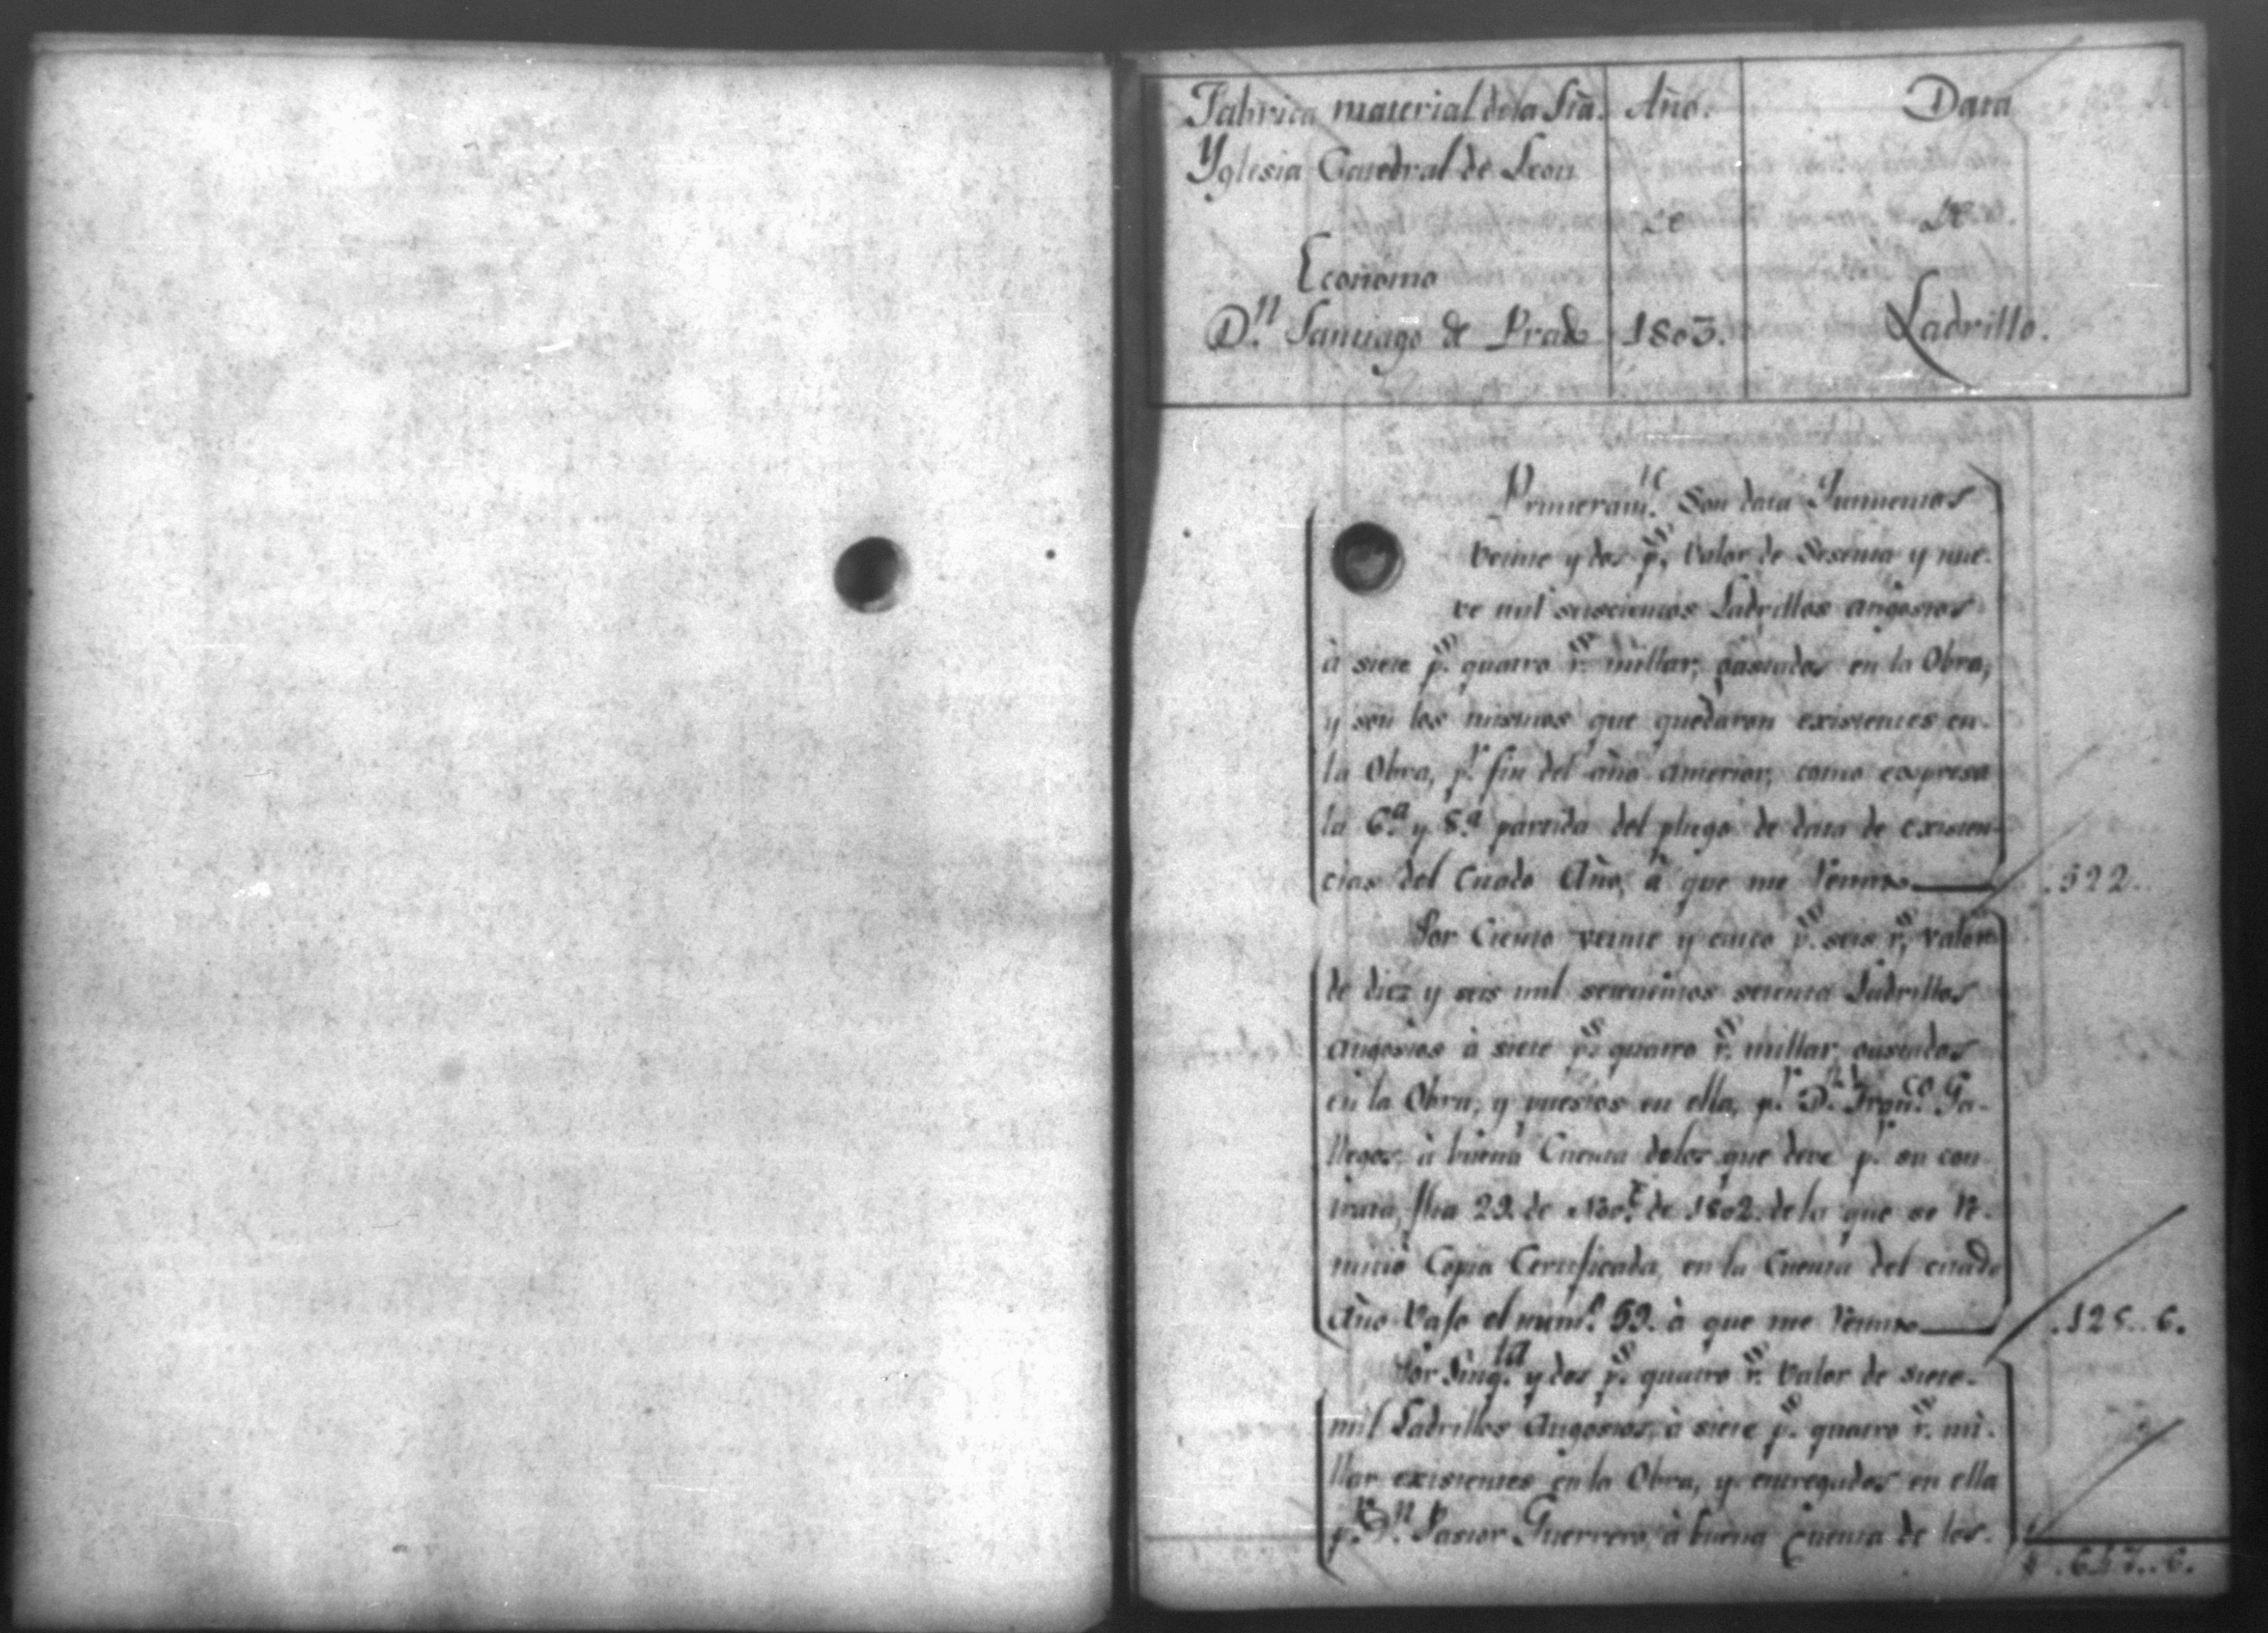 Fabrica material de la Sta. Año. Data
Yglesia Catedral de Leon
de de
Economo
Dn. Santiago de Prado 1803. Ladrillo.
Primeramte. Son data Quinientos
veinte y dos ps. valor de Sesenta y nue-
ve mil seiscientos Ladrillos angostos
à siete ps. quatro rs. millar, gastados en la Obra,
y son los mismos que quedaron existentes en
la Obra, pr. fin del año anterior, como expresa
la 6.a y 8.a partida del pliego de data de existen-
cias del Citado Año, à que me remito .522..
Por Ciento veinte y cinco ps. seis rs. valor
de diez y seis mil setecientos setenta Ladrillos
angostos à siete ps. quatro rs. millar, gastados
en la Obra, y puestos en ella, pr. Dn. Franco. Ga-
llegos, à buena Cuenta delos que deve pr. su con-
trata, fha 29. de Nove. de 1802. de la que se re-
mitió Copia Certificada, en la Cuenta del citado
Año vajo el numo. 59. à que me remito .125..6.
Por Sinqta. y dos ps. quatro rs. valor de siete
mil Ladrillos Angostos, à siete ps. quatro rs. mi-
llar existentes en la Obra, y entregados en ella
pr. Dn. Pastor Guerrero, à buena Cuenta de los
.647..6.